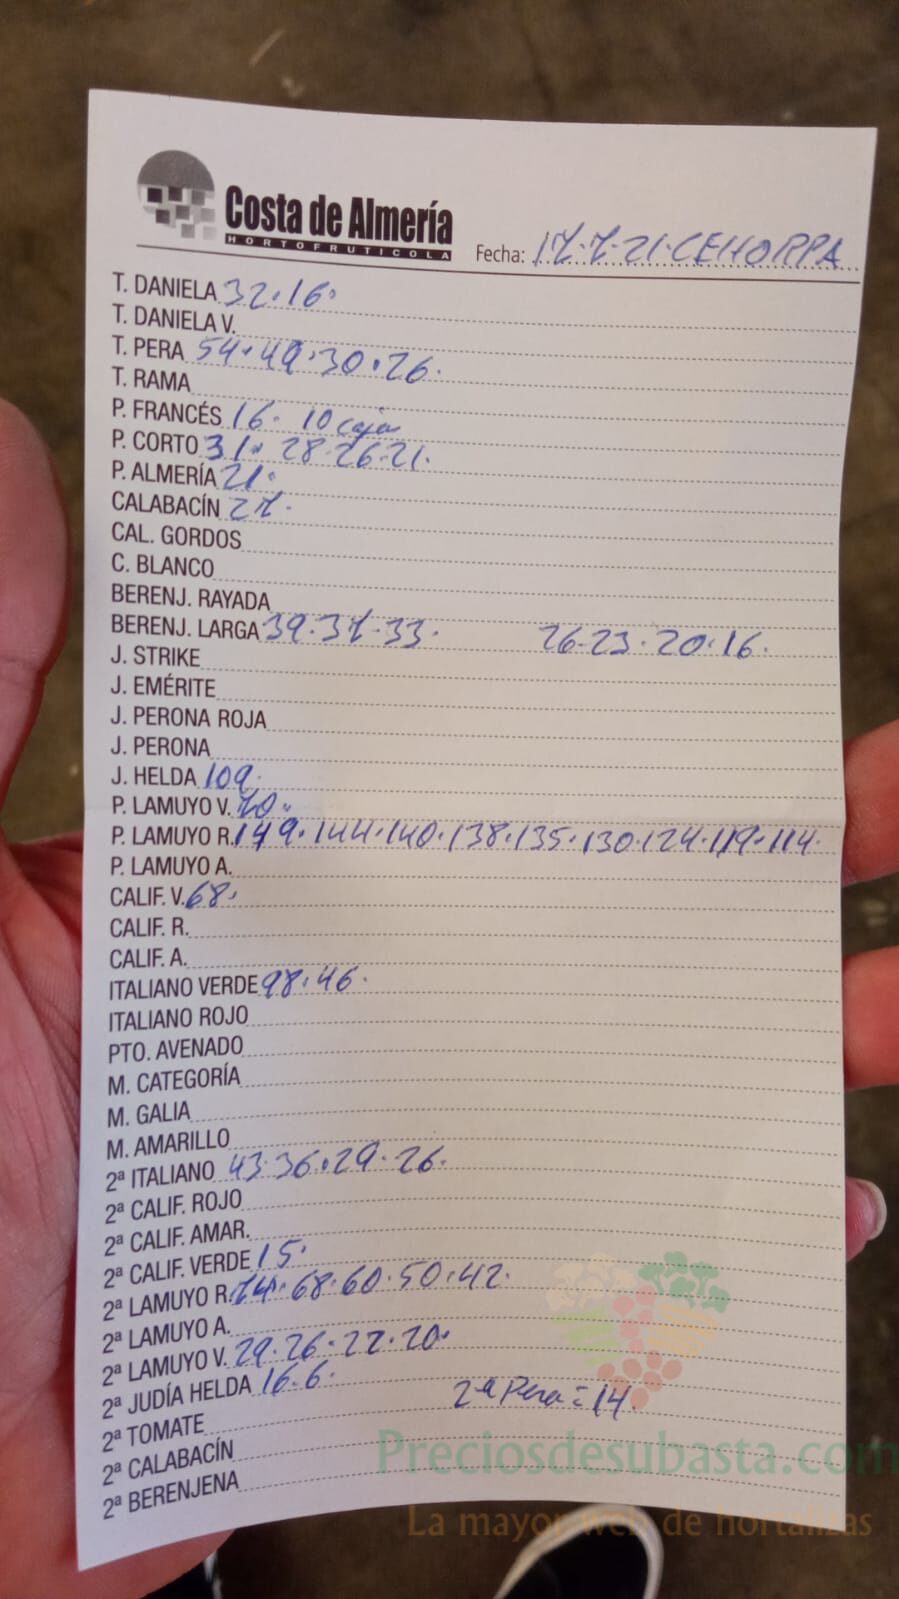 Costa de Almería
HORTOFRUTICOLA
Fecha: 17.7.21.CEHORPA
T. DANIELA 32.16.
T. DANIELA V.
T. PERA 54.49.30.26.
T. RAMA
P. FRANCÉS 16. 10 cajas
P. CORTO 31. 28.26.21.
P. ALMERÍA 21.
CALABACÍN 27.
CAL. GORDOS
C. BLANCO
BERENJ. RAYADA
BERENJ. LARGA 39.37.33. 26.23.20.16.
J. STRIKE
J. EMÉRITE
J. PERONA ROJA
J. PERONA
J. HELDA 109.
P. LAMUYO V. 70.
P. LAMUYO R. 149.144.140.138.135.130.124.119.114.
P. LAMUYO A.
CALIF. V. 68.
CALIF. R.
CALIF. A.
ITALIANO VERDE 98.46.
ITALIANO ROJO
PTO. AVENADO
M. CATEGORÍA
M. GALIA
M. AMARILLO
2ª ITALIANO 43.36.29.26.
2ª CALIF. ROJO
2ª CALIF. AMAR.
2ª CALIF. VERDE 15.
2ª LAMUYO R. 74.68.60.50.42.
2ª LAMUYO A.
2ª LAMUYO V. 29.26.22.20.
2ª JUDÍA HELDA 16.6.
2ª Pera = 14.
2ª TOMATE
2ª CALABACÍN
2ª BERENJENA
Preciosdesubasta.com
La mayor web de hortalizas